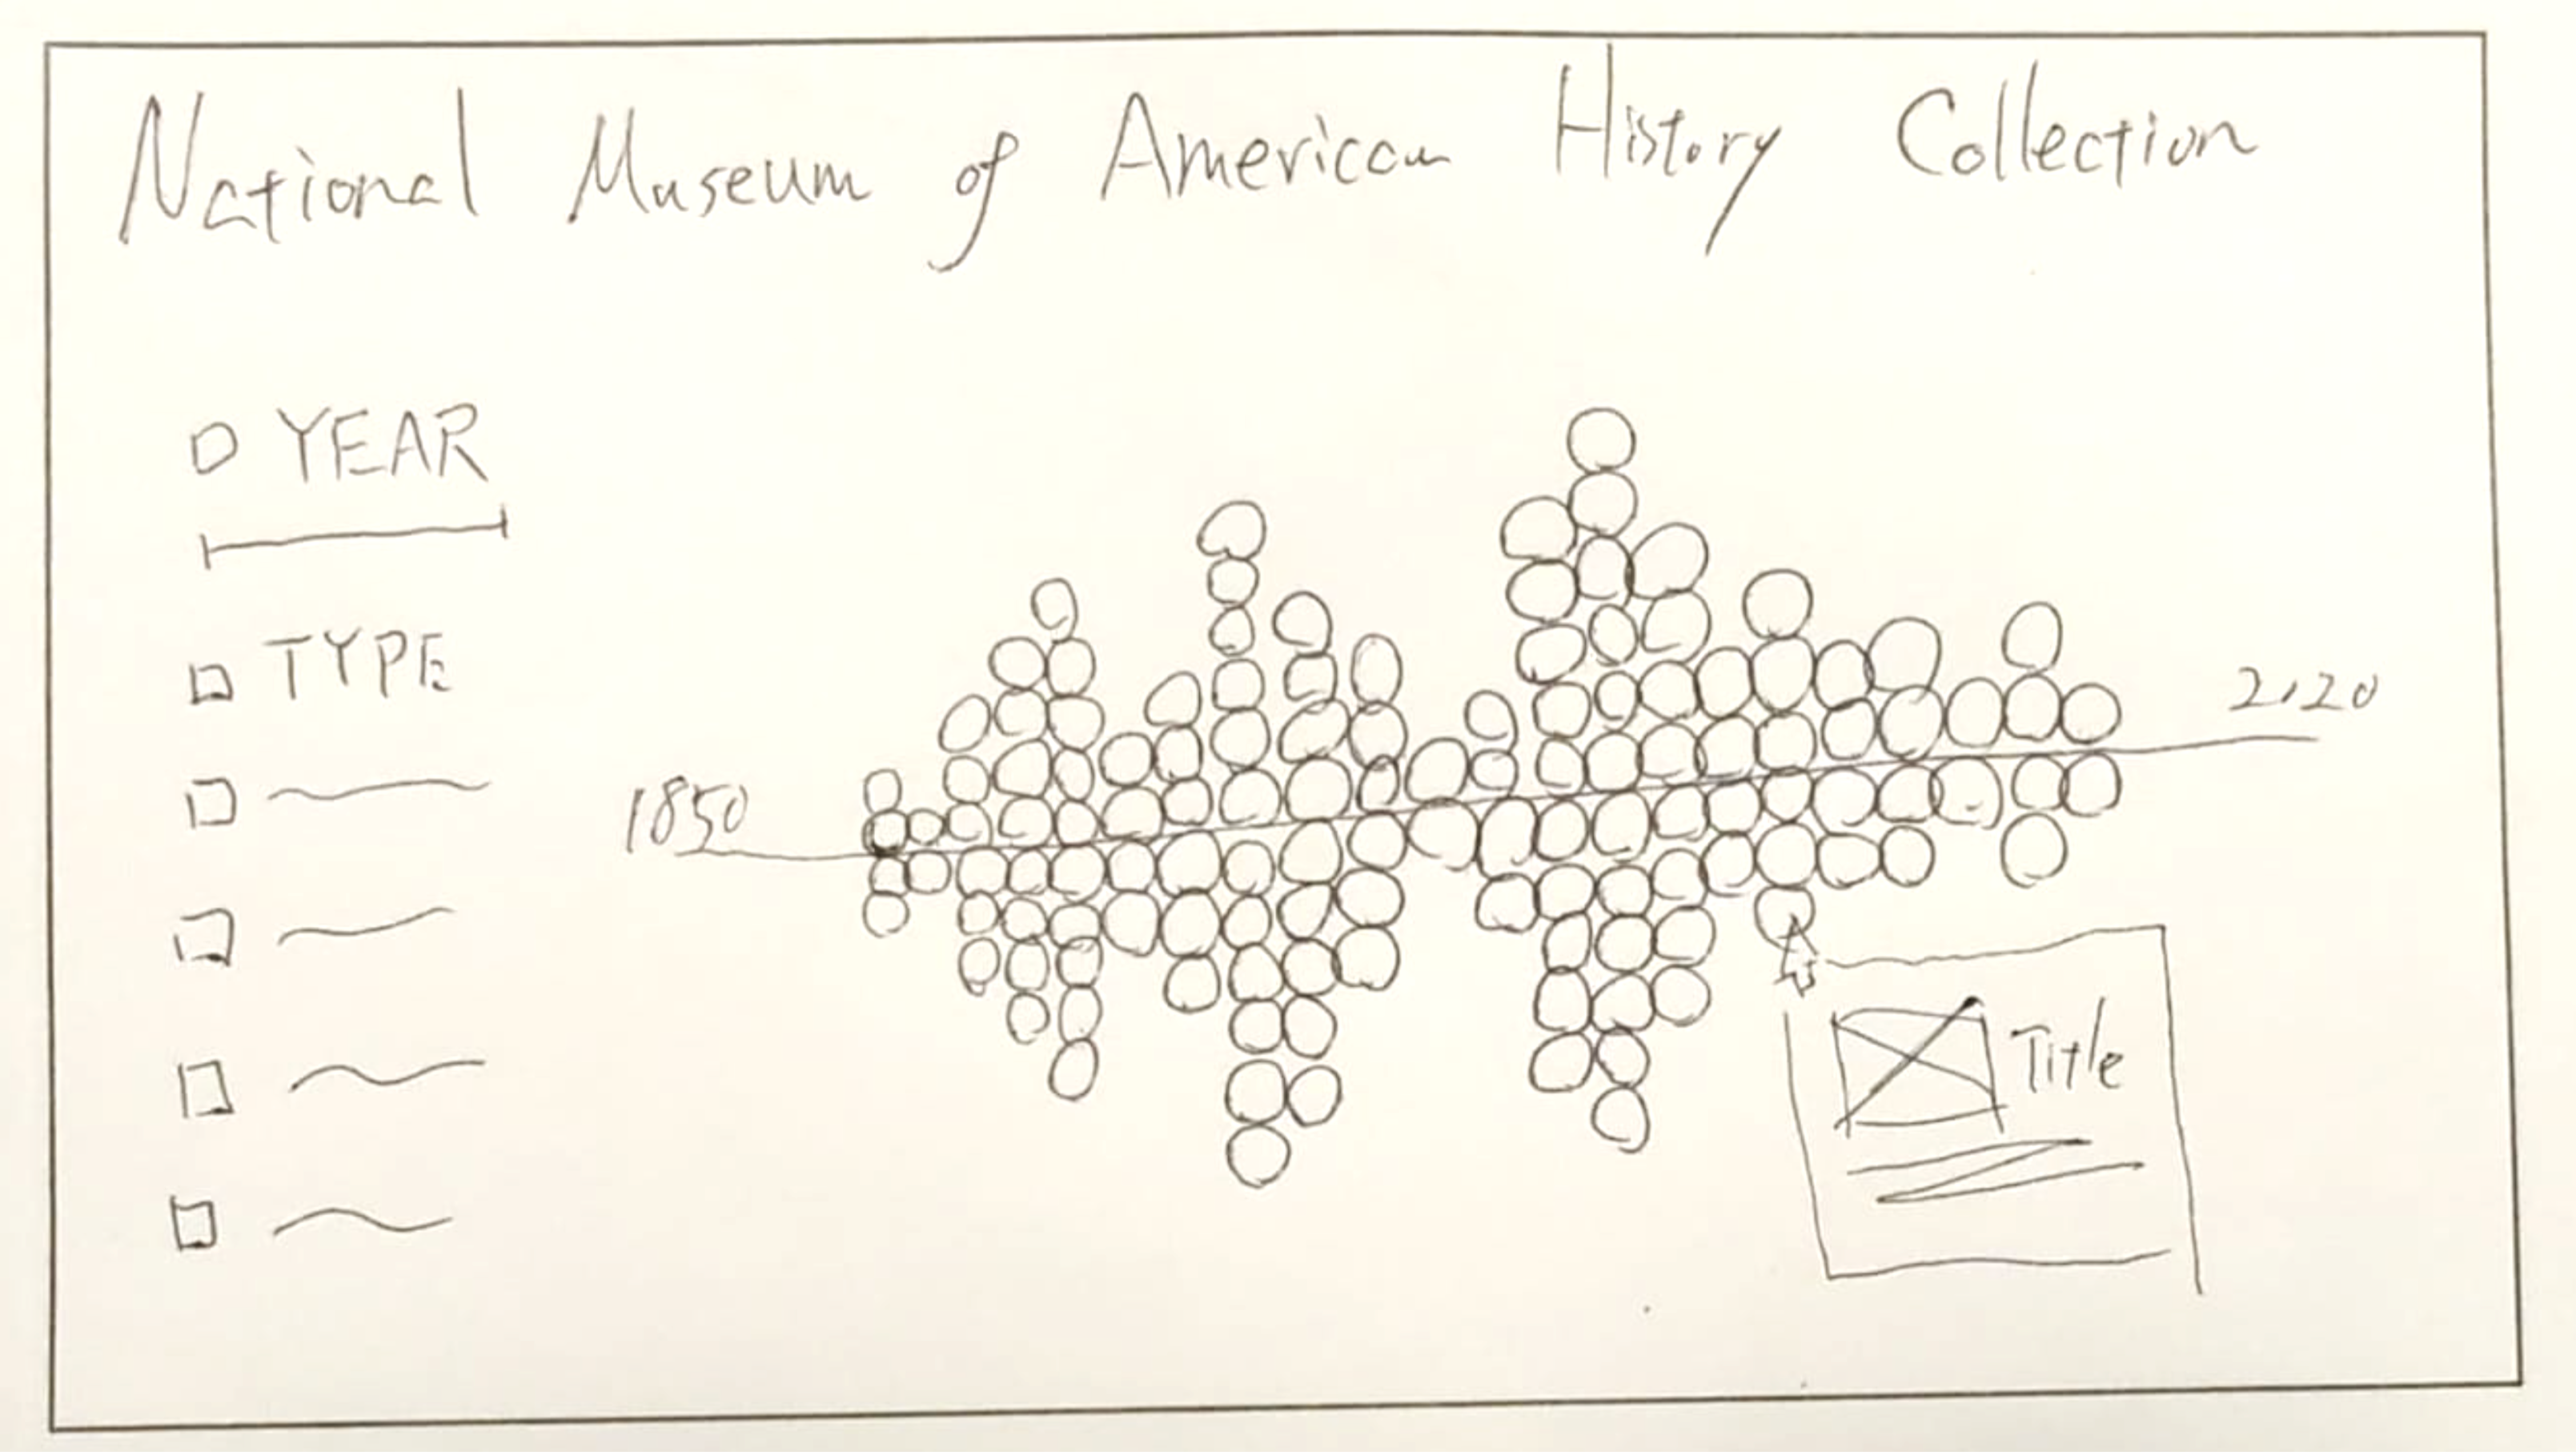 National Museum of American History Collection
YEAR
TYPE
1850
Title